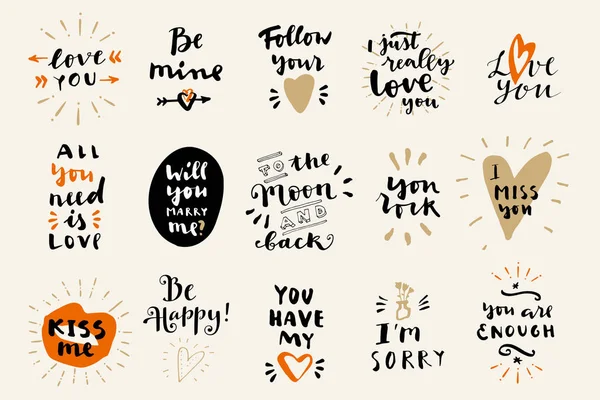 love
YOU
Be
mine
Follow
your
I just
really
Love
you
LOVE
you
ALL
you
need
is
LOVE
Will
you
MARRY
me?
TO the
Moon
AND
back
you
rock
I
MISS
you
KISS
me
Be
Happy!
YOU
HAVE
MY
I'm
SORRY
you are
ENOUGH